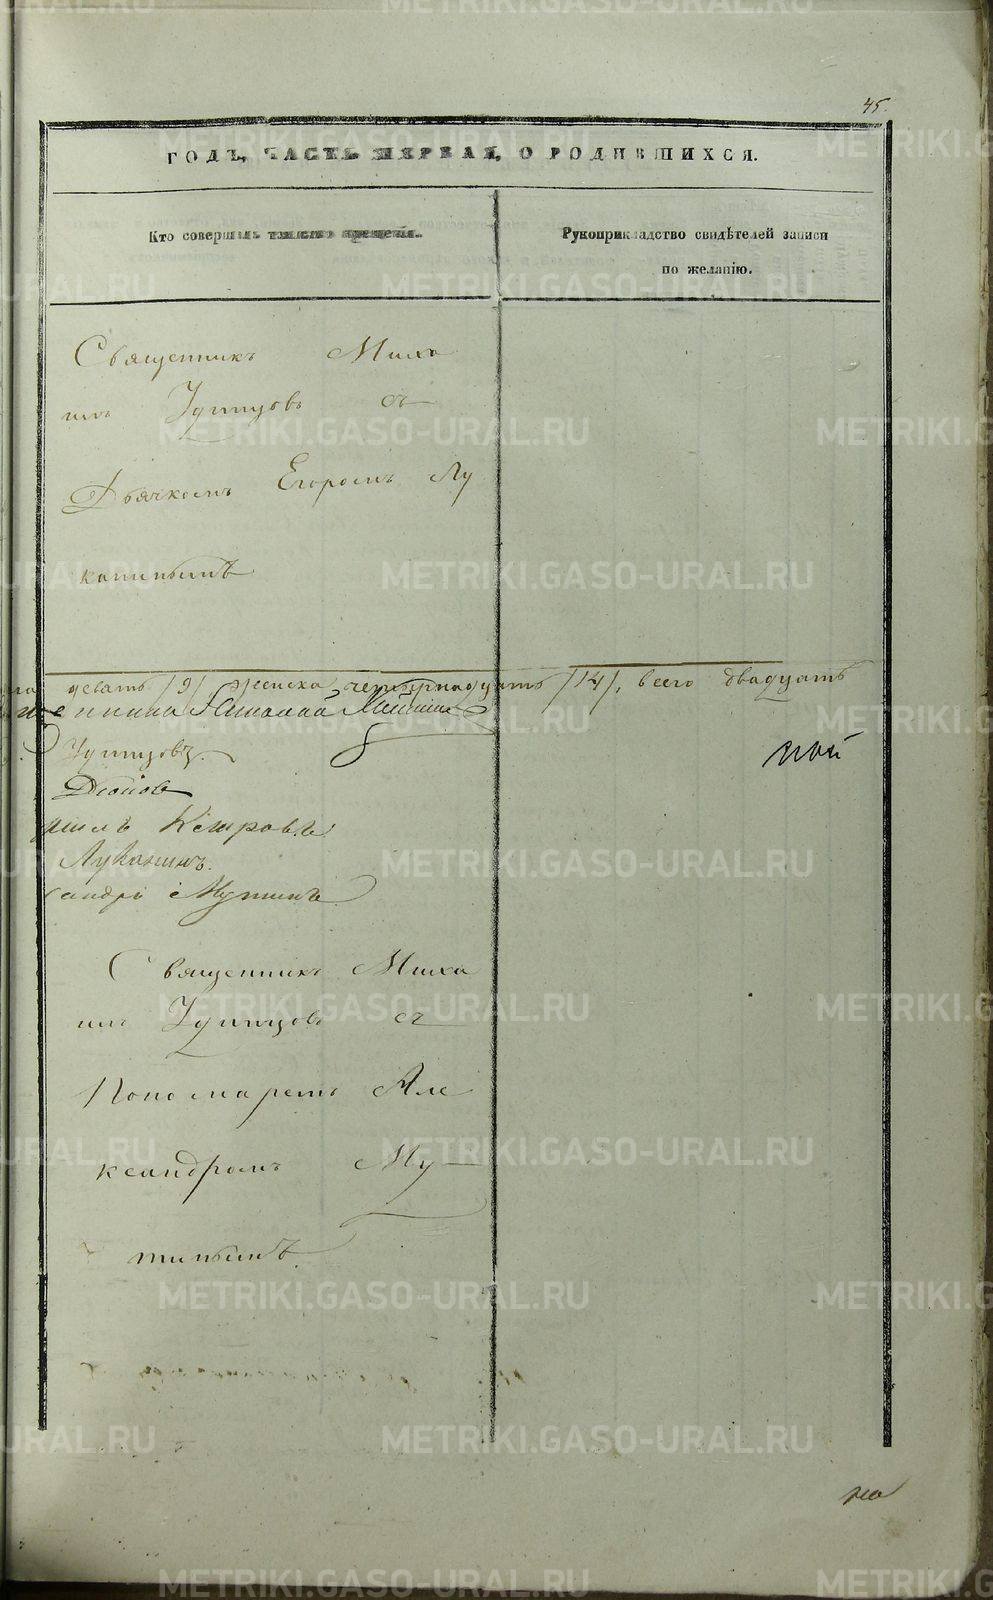 45.
ГОДЪ, ЧАСТЬ ПЕРВАЯ, О РОДИВШИХСЯ.
Кто совершалъ таинство крещенія.
Рукоприкладство свидѣтелей записи
по желанію.
Священникъ Миха
илъ Удинцовъ съ
Дьячкомъ Егоромъ Лу
канинымъ
девять /9/ женска четырнадцать /14/, всего двадцать
Удинцовъ.
ной
Петровъ
Луканинъ.
сандръ Мутинъ
Священникъ Миха
илъ Удинцовъ съ
Пономаремъ Але
ксандромъ Му
тинымъ.
METRIKI.GASO-URAL.RU